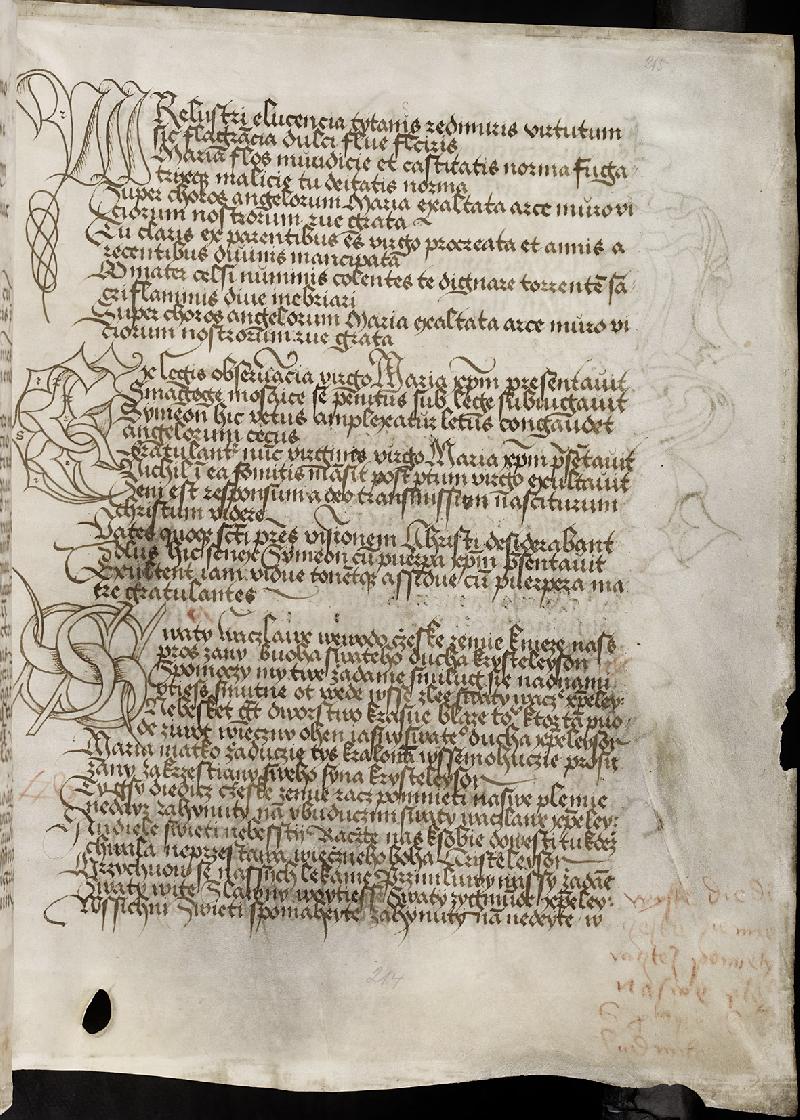 215
Prelustri elucencia tytanis redimiris virtutum
sic flagrācia dulci flue flciris
Maria flos mūndicie et castitatis norma fuga
trixqꝫ malicie tu deitatis norma
Super choros angelorum Maria exaltata arce muro vi
ciorum nostrorum rue grata
Tu claris ex parentibus es virgo procreata et annis a
recentibus diuinis mancipata
O mater celsi numinis colentes te dignare torrentē sa
cri flaminis diue inebriari
Super choros angelorum Maria exaltata arce muro vi
ciorum nostrorum rue grata
Ex legis obseruācia virgo Maria xpm presentauit
Sinagoge mosaice se penitus sub lege subiugauit
Symeon hic vetus amplexatur letus congaudet
angelorum cetus
Gratulantʳ nūc virgines virgo Maria xpm pn̄tauit
Nichil ī ea fomitis māsit post ptum virgo exultauit
Seni est responsum a deo transmissum nasciturum
christum videre
Vates quoqꝫ scti pr̄es visionem Christi desiderabant
Tolus hic senex Symeon cū puerpa xpm pn̄tauit
Exultent iam vidue tonetqꝫ assidue cū puerpera ma
tre gratulantes
Swaty waczlawe wewodo czeske zemie knieze nass
pros zany buoha swateho ducha krysteleyson
Spomoczy my twe zadame smiluyg sie nadnami
vtiess smutne ot wede wsse zlee swaty wacꝫ xpeley
Nebeske gt dworstwo krasne blaze toᵘ ktoz tā puo
de zuwot wieczny ohen jasny swateᵒ ducha xpeleyson
Maria matko zaduczie tys kralowa wssemohuczie prosiz
zany zakrzestiany sweho syna krysteleyson
Ty gsy diedicz czeske zemie racz pomnieti naswe plemie
nedayz zahynuty nā ybuduczim swaty waczlawe xpeley:
Andiele swieti nebesstij Raczte nas ksobie dowesti tu kdeꝫ
chwala neprzestawa wieczneho boha Cristeleyson
Przychuow se nassich lekame Przimluwy wassy zadāe
Swaty wite Slawny woytiess Swaty zygmude xpeley:
Wssichni Swieti spomaheyte zahynuty nā nedeyte w
214